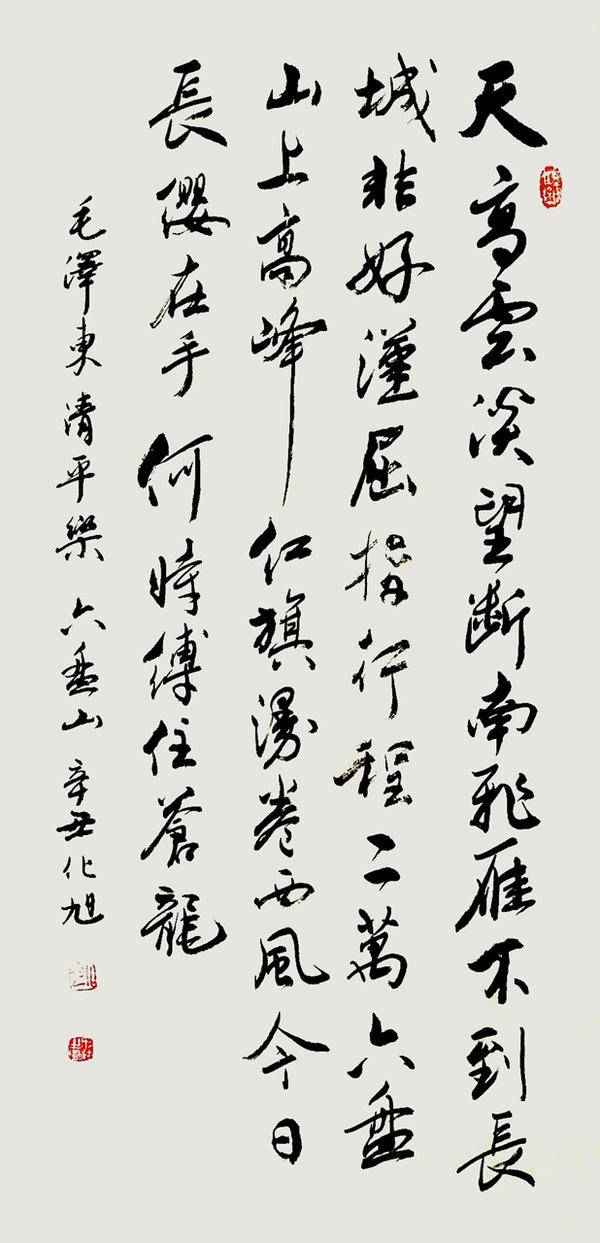 天高雲淡望斷南飛雁不到長
城非好漢屈指行程二萬六盤
山上高峰紅旗漫卷西風今日
長纓在手何時縛住蒼龍
毛澤東清平樂六盤山辛丑化旭